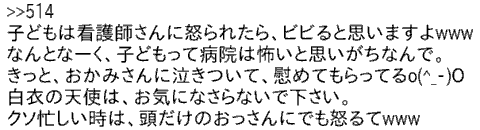 >>514
子どもは看護師さんに怒られたら、ビビると思いますよwww
なんとなーく、子どもって病院は怖いと思いがちなんで。
きっと、おかみさんに泣きついて、慰めてもらってるo(^_-)O
白衣の天使は、お気になさらないで下さい。
クソ忙しい時は、頭だけのおっさんにでも怒るてwww